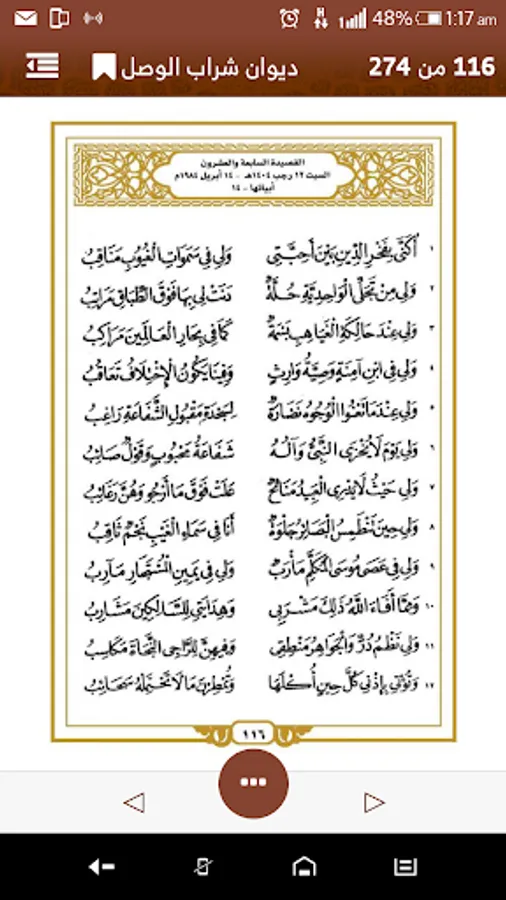 48% 1:17 am
116 من 274 ديوان شراب الوصل
القصيدة السابعة والعشرون
السبت ١٢ رجب ١٤٠٤هـ - ١٤ أبريل ١٩٨٤م
أبياتها - ١٤
١ أُكَنَّى بِفَخْرِ الدِّينِ بَيْنَ أَحِبَّتِي وَلِي فِي سَمَوَاتِ الْغُيُوبِ مَنَاقِبُ
٢ وَلِي مِنْ تَجَلِّي الْوَاحِدِيَّةِ حُلَّةٌ دَنَتْ لِي بِهَا فَوْقَ الطِّبَاقِ مَرَاتِبُ
٣ وَلِي عِنْدَ حَالِكَةِ الْغَيَاهِبِ بَسْمَةٌ كَمَا فِي بِحَارِ الْعَالَمِينَ مَرَاكِبُ
٤ وَلِي فِي ابْنِ آمِنَةٍ وَصِيَّةُ وَارِثٍ وَفِينَا يَكُونُ الْإِخْتِلَافُ تَعَاقُبُ
٥ وَلِي عِنْدَمَا تَعْنُوا الْوُجُوهُ نَضَارَةٌ لِسَجْدَةِ مَقْبُولِ الشَّفَاعَةِ رَاغِبُ
٦ وَلِي يَوْمَ لَا يُخْزَى النَّبِيُّ وَآلُهُ شَفَاعَةُ مَحْبُوبٍ وَقَوْلٌ صَائِبُ
٧ وَلِي حَيْثُ لَا يَدْرِي الْعَبِيدُ مَنَائِحٌ عَلَتْ فَوْقَ مَا أَرْجُو وَهُنَّ رَغَائِبُ
٨ وَلِي حِينَ تَنْطَمِسُ الْبَصَائِرُ جَلْوَةٌ أَنَا فِي سَمَاءِ الْغَيْبِ نَجْمٌ ثَاقِبُ
٩ وَلِي فِي عَصَى مُوسَى الْمُكَلَّمِ مَأْرَبٌ وَلِي فِي يَمِينِ مَآرِبُ
١٠ وَمِمَّا أَفَاءَ اللهُ ذَلِكَ مَشْرَبِي وَهِدَايَتِي لِلسَّالِكِينَ مَشَارِبُ
١١ وَلِي نَظْمُ دُرٍّ وَالْجَوَاهِرُ مَنْطِقِي وَفِيهِنَّ لِلرَّاجِي النَّجَاةَ مَكَاسِبُ
١٢ وَتُؤْتِي بِإِذْنِي كُلَّ حِينٍ أُكْلَهَا وَتُمْطِرُنَ مَا لَا تَحْتَمِلْهُ سَحَائِبُ
١١٦